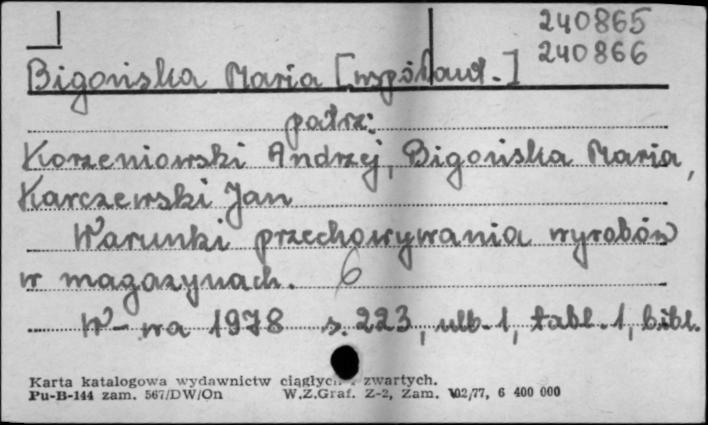 240865
240866
Bigońska Maria [współaut.]
patrz:
Korzeniowski Andrzej, Bigońska Maria,
Karczewski Jan
Warunki przechowywania wyrobów
w magazynach. 6
W-wa 1978 s. 223, ulb. 1, tabl. 1, bibl.
Karta katalogowa wydawnictw ciągłych i zwartych.
Pu-B-144 zam. 567/DW/On W.Z.Graf. Z-2, Zam. 102/77, 6 400 000